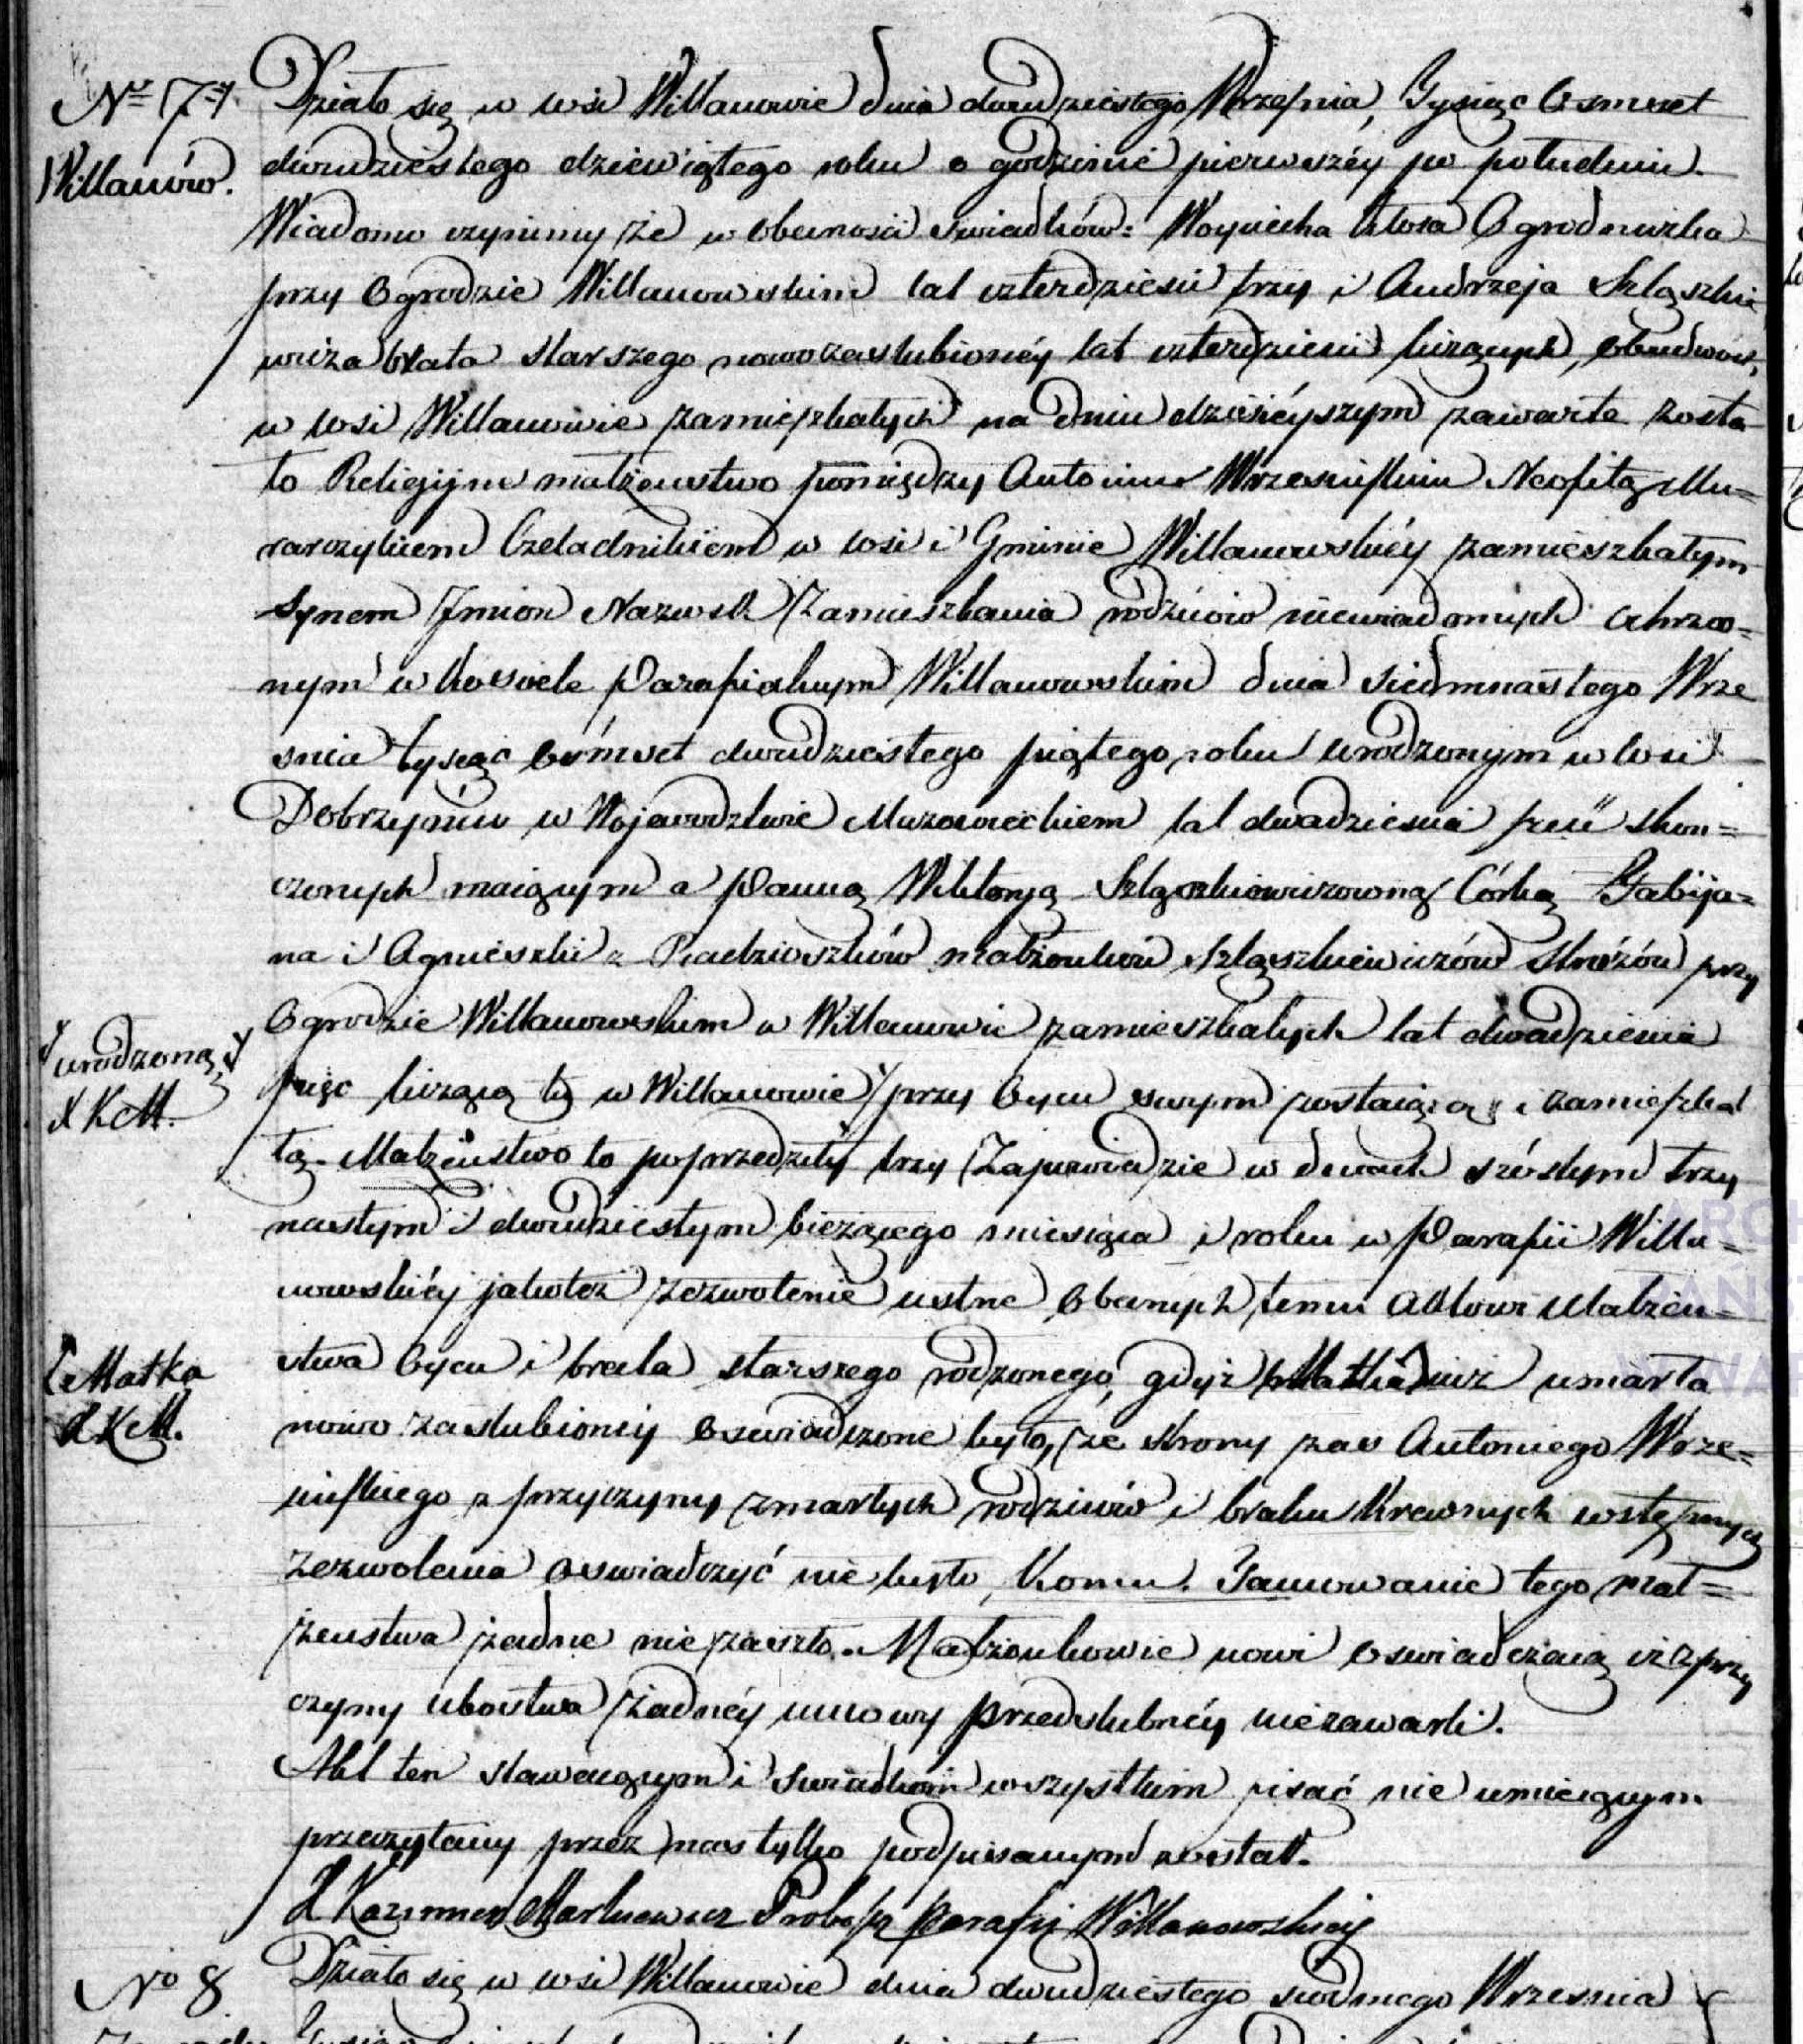 Nr 7
Willanów.
Działo się w wsi Willanowie dnia dwudziestego Września, Tysiąc Osmset
dwudziestego dziewiątego roku o godzinie pierwszéy po południu.
Wiadomo czynimy że w obecności świadków: Woyciecha Ogrodniczka
przy Ogrodzie Willanowskim lat czterdzieści trzy i Andrzeja Szląszkie
wicza brata starszego nowozaslubionéy lat czterdzieści liczących, obudwóch
w wsi Willanowie zamieszkałych na dniu dzisieyszym zawarte zosta
ło Religijne małżeństwo pomiędzy Antonim Wrzesińskim Neofitą Mu=
rarczykiem Czeladnikiem w wsi i Gminie Willanowskiéy zamieszkałym
Synem Jmion Nazwisk Zamieszkania rodziców niewiadomych ochrzco=
nym w Kościele Parafialnym Willanowskim dnia siedmnastego Wrze
snia tysiąc ósmset dwudziestego piątego roku urodzonym w wsi
Dobrzyniu w Wojewodztwie Mazowieckiem lat dwadzieścia skoń=
czonych maiącym a Panną Wiktoryą Szląszkiewiczowną Córką Fabija=
na i Agnieszki z Radziszków małżonków Szląszkiewiczów Stróżów przy
Ogrodzie Willanowskim w Willanowie zamieszkałych lat dwadzieścia
urodzoną
X KM.
pięć liczącą tu w Willanowie przy Oycu swym zostaiącą i zamieszka
łą. Małżeństwo to poprzedziły trzy Zapowiedzie w dniach szóstym trzy
nastym i dwudziestym bieżącego miesiąca i roku w Parafii Willa=
nowskiéy jakoteż zezwolenie ustne obecnych temu Aktowi Małżeń=
Matka
X KM.
stwa Oyca i brata starszego rodzonego, gdyż Matka już umarła
nowo zaslubionéy oswiadczone było, ze strony zas Antoniego Wrze=
sińskiego z przyczyny zmarłych rodziców i braku Krewnych wstępnych
zezwolenia oswiadczyć nie było, Komu. Tamowanie tego mał=
żeństwa żadne nie zaszło. Małżonkowie nowi oswiadczaią iż z przy
czyny ubostwa żadnéy umowy przedslubnéy niezawarli.
Akt ten stawaiącym i swiadkom wszystkim pisać nie umieiącym
przeczytany przez nas tylko podpisanym został.
X Kazimierz Markiewicz Proboszcz Parafij Willanowskiéy
No 8
Działo się w wsi Willanowie dnia dwudziestego siodmego Wrzesnia